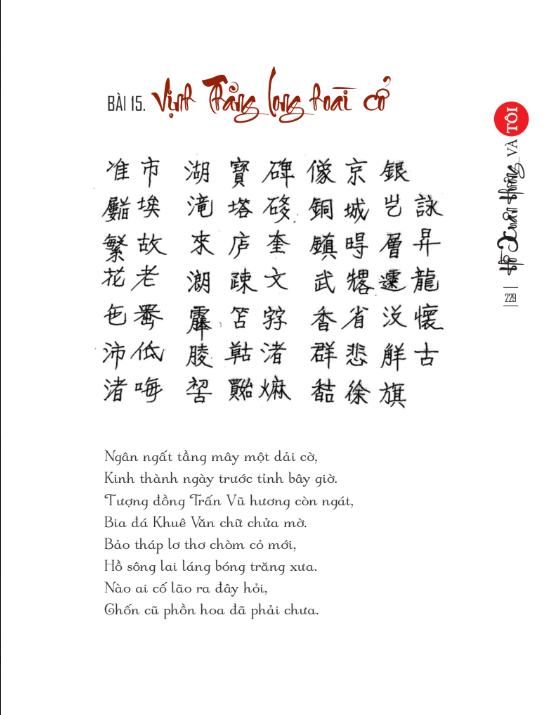 BÀI 15. Vịnh Thăng long hoài cổ
詠昇龍懷古
銀層没旗
京城省悲徐
像銅鎮武香群
碑奎文渚
寶塔疎
湖滝來潮
市埃故老低
准繁花沛渚
Ngân ngất tầng mây một dải cờ,
Kinh thành ngày trước tỉnh bây giờ.
Tượng đồng Trấn Vũ hương còn ngát,
Bia đá Khuê Văn chữ chửa mờ.
Bảo tháp lơ thơ chòm cỏ mới,
Hồ sông lai láng bóng trăng xưa.
Nào ai cố lão ra đây hỏi,
Chốn cũ phồn hoa đã phải chưa.
229 | Hồ Xuân Hương VÀ TÔI